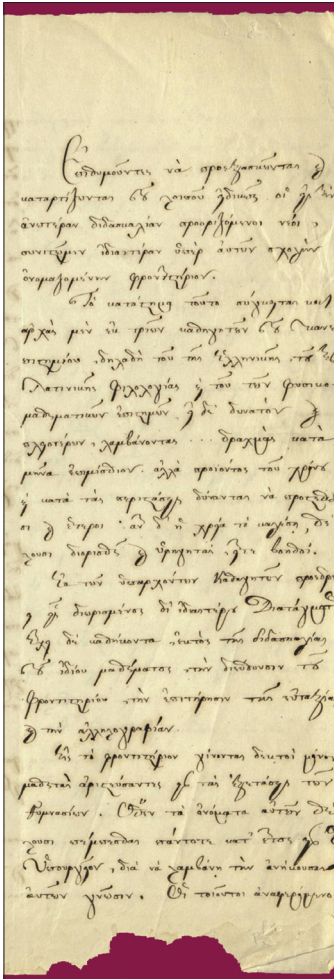 Ἐπιθυμοῦντες νὰ προετοιμασθῶσι
καταρτίζωνται διδασκαλίαν
ἀνωτέραν διδασκαλίαν προοριζόμενοι νέοι,
συνιστῶμεν ἰδιαιτέραν ὑπὲρ αὐτῶν σχολὴν
ὀνομαζομένην Φροντιστήριον.
Τὸ κατάστημα τοῦτο σύγκειται κατ'
ἀρχὰς μὲν ἐκ τριῶν καθηγητῶν τοῦ Πανε
πιστημίου, δηλαδὴ τοῦ τῆς Ἑλληνικῆς, τοῦ τῆς
Λατινικῆς Φιλολογίας καὶ τοῦ τῶν φυσικο
μαθηματικῶν ἐπιστημῶν δυνατὸν
λαμβάνοντας ... δραχμὰς κατὰ
μῆνα ἐπιμίσθιον. ἀλλὰ προϊόντος τοῦ χρόνου
καὶ κατὰ τὰς περιστάσεις δύνανται νὰ προστεθῶ
σι καὶ ἕτεροι ἂν ἡ χρεία τὸ καλέσῃ,
διορισθῆ καὶ ὑφηγηταὶ, εἴτε βοηθοί.
Ἐκ τῶν ὑπαρχόντων Καθηγητῶν προεδρ
διωρισμένος δι' ἰδιαιτέρου Διατάγματ
ἔχει δὲ καθήκοντα, ἐκτὸς τῆς διδασκαλίας
τοῦ ἰδίου μαθήματος, τὴν διεύθυνσιν τοῦ
Φροντιστηρίου, τὴν ἐπιτήρησιν τῆς εὐταξίας
καὶ τὴν ἀλληλογραφίαν.
Εἰς τὸ φροντιστήριον γίνονται δεκτοὶ μόνον
μαθηταὶ ἀριστεύσαντες εἰς τὰς ἐξετάσεις τῶν
Γυμνασίων. Ὅθεν τὰ ὀνόματα αὐτῶν
πέμπεσθαι πάντοτε κατ' ἔτος εἰς
Ὑπουργεῖον, διὰ νὰ λαμβάνῃ τὴν ἀνήκουσαν
αὐτῶν γνῶσιν. Οἱ τοιοῦτοι ἀναφερόμενο